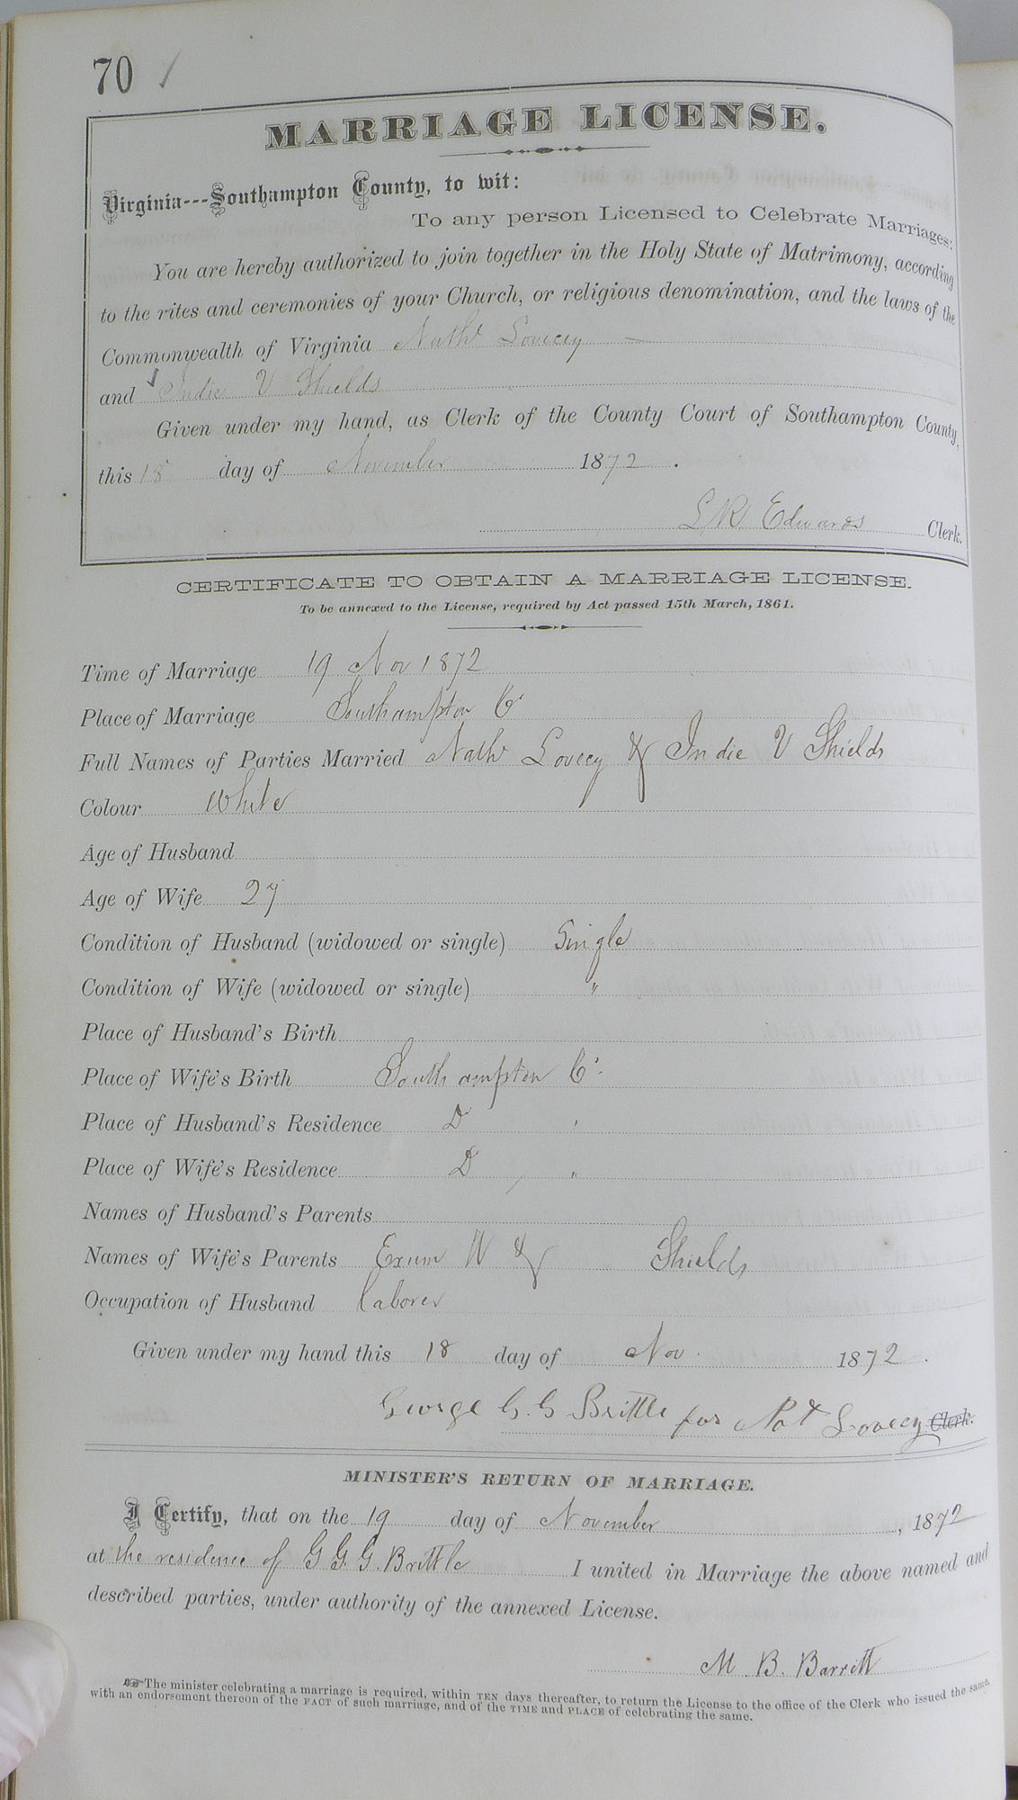 70 /
MARRIAGE LICENSE.
Virginia---Southampton County, to wit:
To any person Licensed to Celebrate Marriages:
You are hereby authorized to join together in the Holy State of Matrimony, according
to the rites and ceremonies of your Church, or religious denomination, and the laws of the
Commonwealth of Virginia Nathl Lovecy
and Indie V Shields
Given under my hand, as Clerk of the County Court of Southampton County,
this 18 day of November 1872.
L R Edwards Clerk.
CERTIFICATE TO OBTAIN A MARRIAGE LICENSE.
To be annexed to the License, required by Act passed 15th March, 1861.
Time of Marriage 19 Nov 1872
Place of Marriage Southampton Co
Full Names of Parties Married Nathl Lovecy & Indie V Shields
Colour White
Age of Husband
Age of Wife 27
Condition of Husband (widowed or single) Single
Condition of Wife (widowed or single) "
Place of Husband's Birth
Place of Wife's Birth Southampton Co.
Place of Husband's Residence Do "
Place of Wife's Residence Do "
Names of Husband's Parents
Names of Wife's Parents Exum W & Shields
Occupation of Husband laborer
Given under my hand this 18 day of Nov. 1872.
George G. G Brittle for Nat Lovecy Clerk.
MINISTER'S RETURN OF MARRIAGE.
I Certify, that on the 19 day of November, 1872
at the residence of G G G. Brittle I united in Marriage the above named and
described parties, under authority of the annexed License.
M. B. Barritt
The minister celebrating a marriage is required, within TEN days thereafter, to return the License to the office of the Clerk who issued the same,
with an endorsement thereon of the FACT of such marriage, and of the TIME and PLACE of celebrating the same.